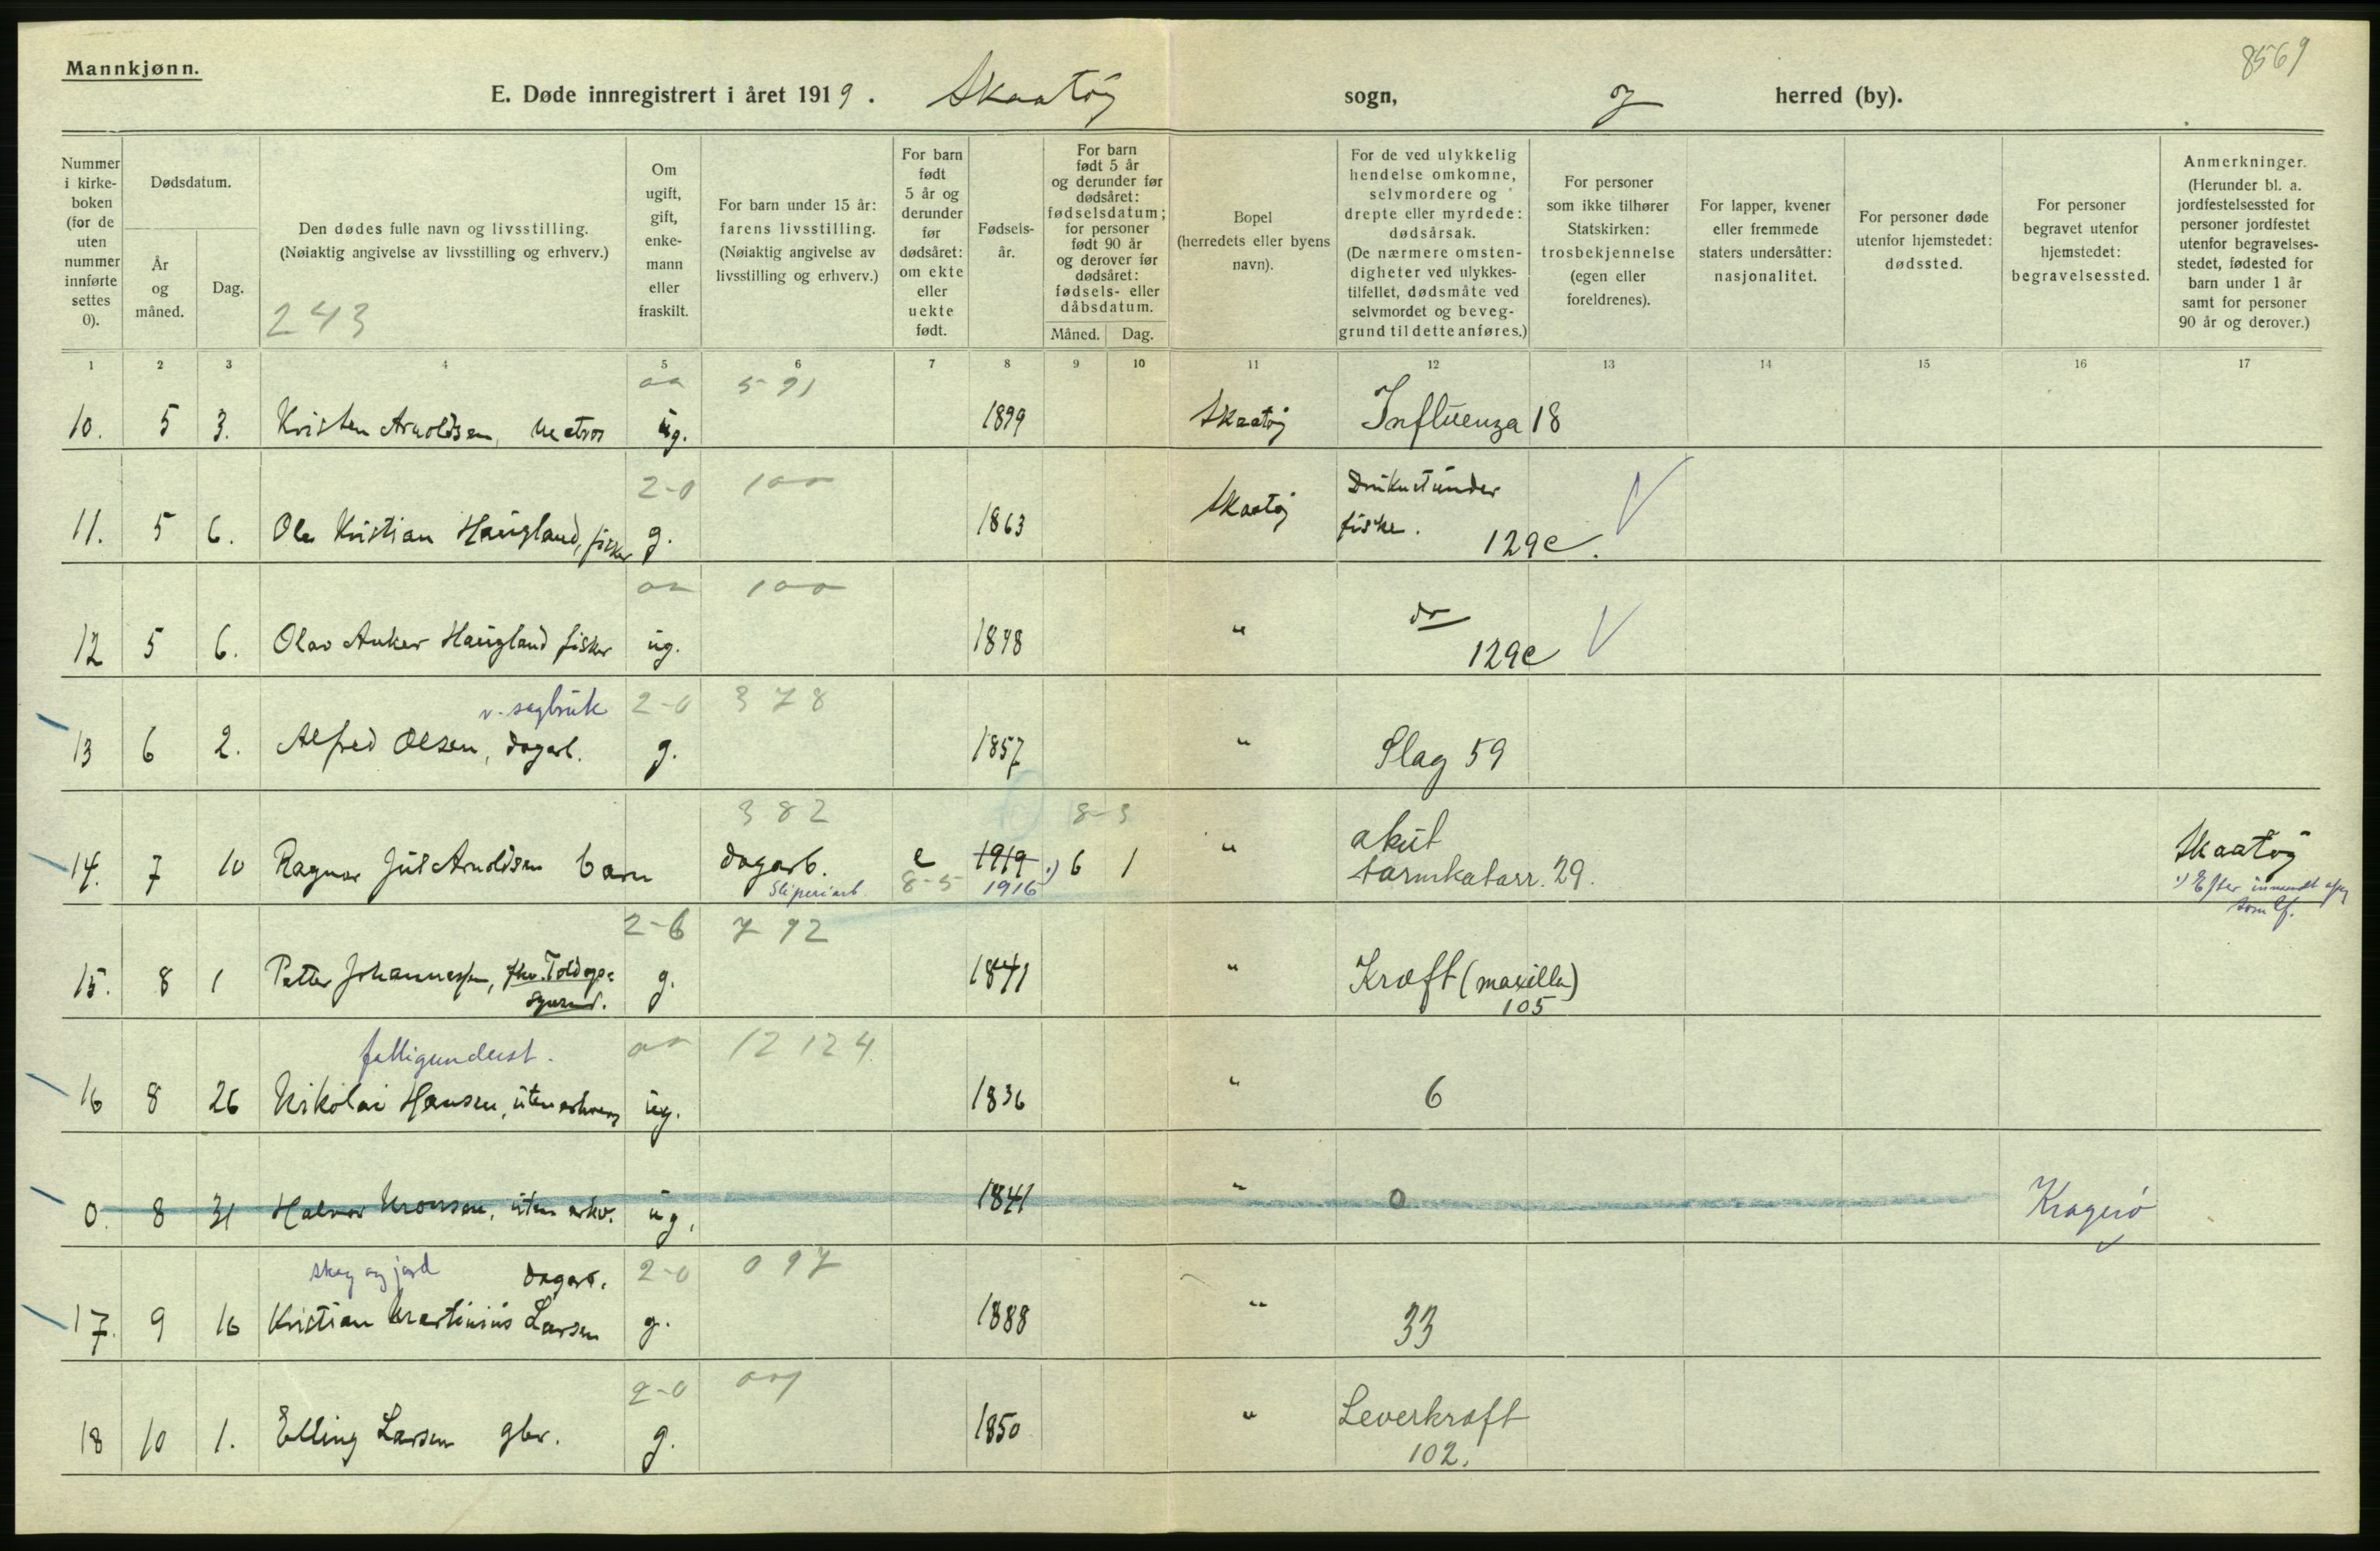 8569
Mannkjønn.
E. Døde innregistrert i året 1919. Skaatøy sogn, og herred (by).
Nummer i kirkeboken (for de uten nummer innførte settes 0).
Dødsdatum.
År og måned.
Dag.
Den dødes fulle navn og livsstilling.
(Nøiaktig angivelse av livsstilling og erhverv.)
243
Om ugift, gift, enkemann eller fraskilt.
For barn under 15 år: farens livsstilling. (Nøiaktig angivelse av livsstilling og erhverv.)
For barn født 5 år og derunder før dødsåret: om ekte eller uekte født.
Fødselsår.
For barn født 5 år og derunder før dødsåret: fødselsdatum; for personer født 90 år og derover før dødsåret: fødsels- eller dåbsdatum.
Måned. Dag.
Bopel (herredets eller byens navn).
For de ved ulykkelig hendelse omkomne, selvmordere og drepte eller myrdede: dødsårsak. (De nærmere omstendigheter ved ulykkestilfellet, dødsmåte ved selvmordet og beveggrund til dette anføres.)
For personer som ikke tilhører Statskirken: trosbekjennelse (egen eller foreldrenes).
For lapper, kvener eller fremmede staters undersåtter: nasjonalitet.
For personer døde utenfor hjemstedet: dødssted.
For personer begravet utenfor hjemstedet: begravelsessted.
Anmerkninger. (Herunder bl. a. jordfestelsessted for personer jordfestet utenfor begravelsesstedet, fødested for barn under 1 år samt for personer 90 år og derover.)
1 2 3 4 5 6 7 8 9 10 11 12 13 14 15 16 17
591
10. 5 3. Kristen Arnoldsen, Matros ug. 1899 Skaatøy Influenza 18
2-0 100
11. 5 6. Ole Kristian Haugland, fisker g. 1863 Skaatøy Druknet under
fiske. 129e.
100
12 5 6. Olav Anker Haugland fisker ug. 1898 " do
129e
v. sagbruk 2-0 378
13 6 2. Alfred Olsen, dagarb. g. 1857 " Slag 59
382 8-3
14. 7 10 Ragnar Jul Arnoldsen barn dagarb. e 1919 1) 6 1 " akut
tarmkatarr. 29. Skaatøy
Sliperiarb. 8-5 1916 1) Efter innsendt
2-6 792
15. 8 1 Petter Johannessen, fhv. Toldopsynsmd. g. 1841 " Kræft (maxilla)
105
fattigunderst. 12 124
16 8 26 Nikolai Hansen, uten erhverv ug. 1836 " 6
0. 8 31 Halvor Monsen, uten erhv. ug. 1841 " 0 Kragerø
skog og jord dagarb. 2-0 097
17. 9 16 Kristian Martinius Larsen g. 1888 " 33
2-0
18 10 1. Elling Larsen gbr. g. 1850 " Leverkræft
102.